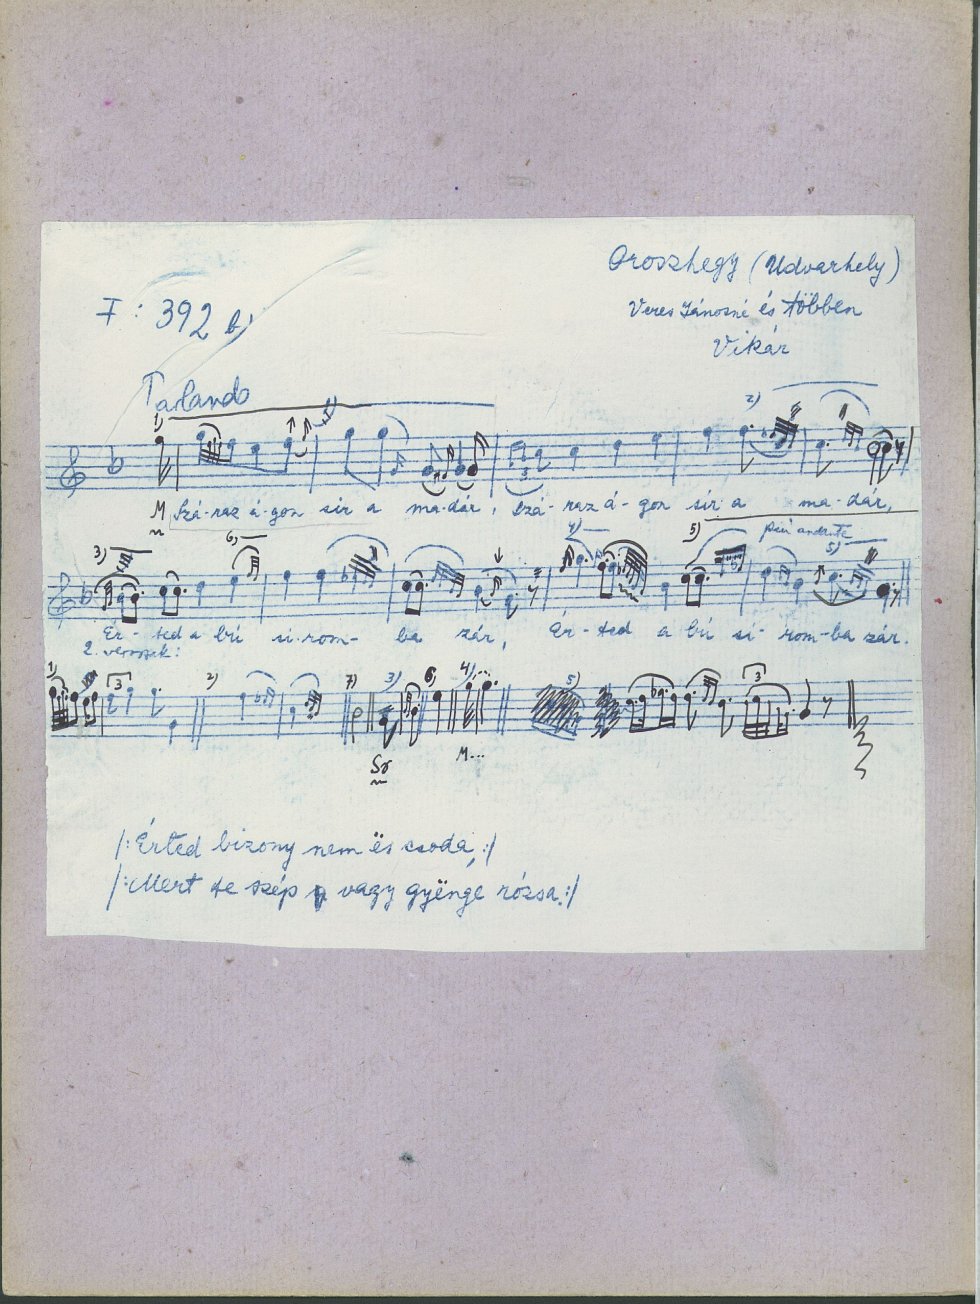 Oroszhegy (Udvarhely)
F : 392 b)
Veres Jánosné és többen
Vikár
Parlando
1) 2)
M Szá-raz á-gon sír a ma-dár, Szá-raz á-gon sír a ma-dár,
3) 6) 4) 5) più andante 5)
Ér-ted a bú sí-rom-ba zár, Ér-ted a bú sí-rom-ba zár.
2. versszak:
1) 3 2) 7) 3) 6) 4) 5) 3
M...
|: Érted bizony nem ës csoda, :|
|: Mert te szép vagy gyënge rózsa. :|